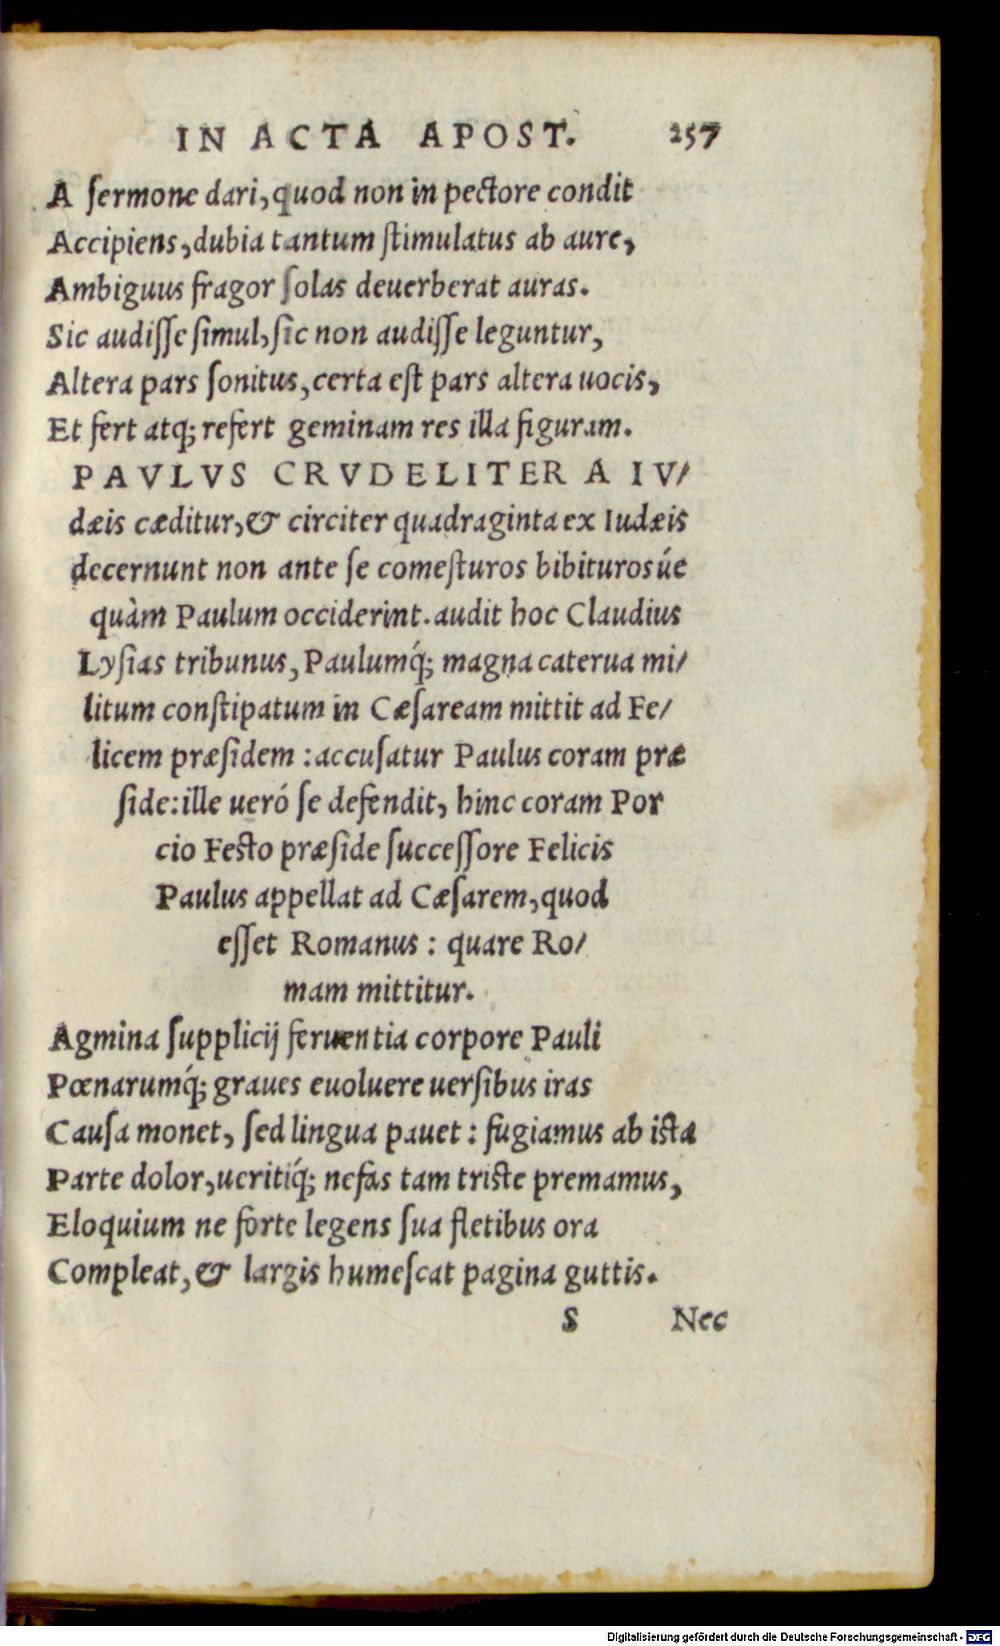 IN ACTA APOST. 257
A sermone dari, quod non in pectore condit
Accipiens, dubia tantum stimulatus ab aure,
Ambiguus fragor solas deuerberat auras.
Sic audisse simul, sic non audisse leguntur,
Altera pars sonitus, certa est pars altera uocis,
Et fert atq; refert geminam res illa figuram.
PAVLVS CRVDELITER A IV/
dæis cæditur, & circiter quadraginta ex Iudæis
decernunt non ante se comesturos bibiturosúe
quàm Paulum occiderint. audit hoc Claudius
Lysias tribunus, Paulumq́; magna caterua mi/
litum constipatum in Cæsaream mittit ad Fe/
licem præsidem : accusatur Paulus coram præ
side: ille ueró se defendit, hinc coram Por
cio Festo præside successore Felicis
Paulus appellat ad Cæsarem, quod
esset Romanus : quare Ro/
mam mittitur.
Agmina supplicij feruentia corpore Pauli
Pœnarumq́; graues euoluere uersibus iras
Causa monet, sed lingua pauet : fugiamus ab ista
Parte dolor, ueritiq́; nefas tam triste premamus,
Eloquium ne forte legens sua fletibus ora
Compleat, & largis humescat pagina guttis.
S Nec
Digitalisierung gefördert durch die Deutsche Forschungsgemeinschaft - DFG